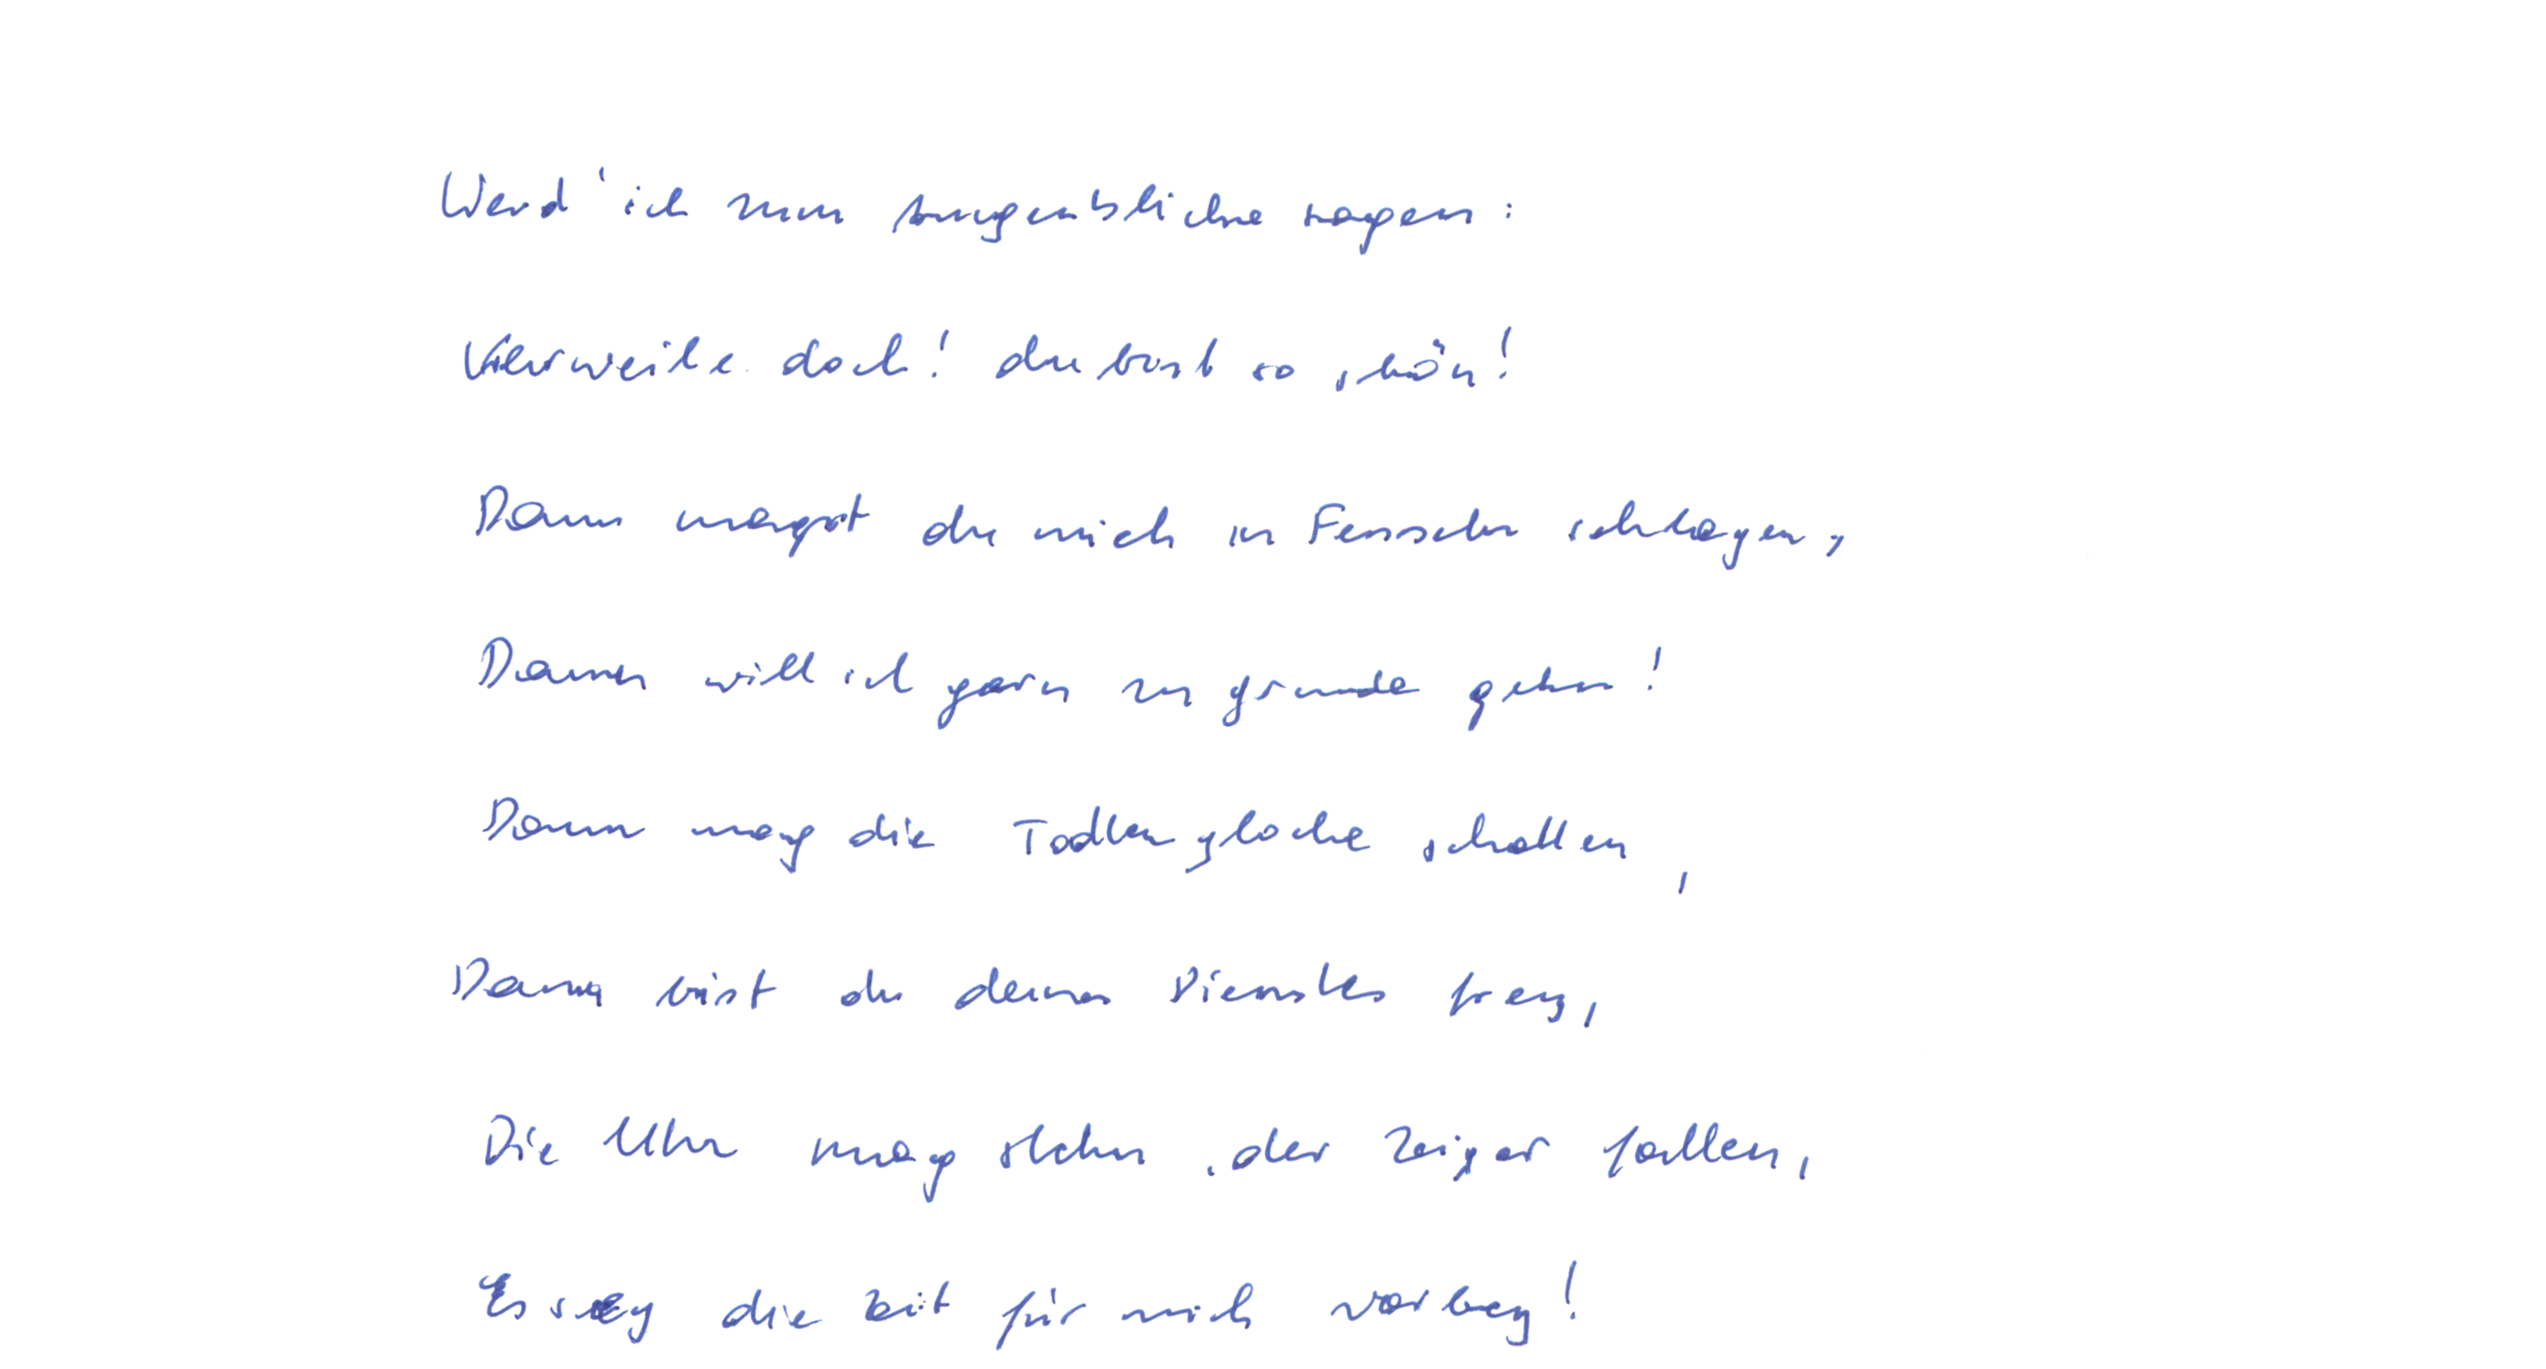 Werd' ich zum Augenblicke sagen:
Verweile doch! du bist so schön!
Dann magst du mich in Fesseln schlagen,
Dann will ich gern zu grunde gehn!
Dann mag die Todtenglocke schallen,
Dann bist du deines Dienstes frey,
Die Uhr mag stehn, der Zeiger fallen,
Es sey die Zeit für mich vorbey!